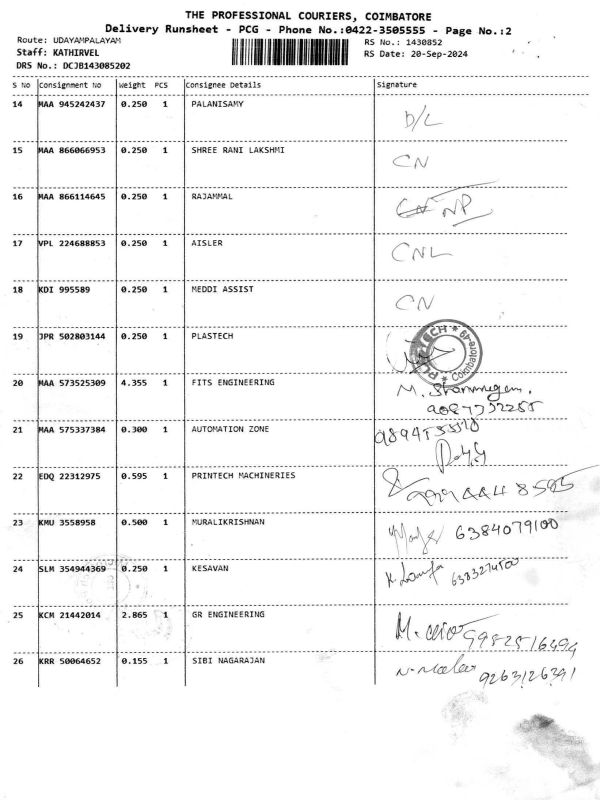 THE PROFESSIONAL COURIERS, COIMBATORE
Delivery Runsheet - PCG - Phone No.:0422-3505555 - Page No.:2
Route: UDAYAMPALAYAM RS No.: 1430852
Staff: KATHIRVEL RS Date: 20-Sep-2024
DRS No.: DCJB143085202
S No Consignment No Weight PCS Consignee Details Signature
14 MAA 945242437 0.250 1 PALANISAMY D/L
15 MAA 866066953 0.250 1 SHREE RANI LAKSHMI CN
16 MAA 866114645 0.250 1 RAJAMMAL CN NP
17 VPL 224688853 0.250 1 AISLER CNL
18 KDI 995589 0.250 1 MEDDI ASSIST CN
19 JPR 502803144 0.250 1 PLASTECH
Coimbatore
20 MAA 573525309 4.355 1 FITS ENGINEERING M.
21 MAA 575337384 0.300 1 AUTOMATION ZONE
22 EDQ 22312975 0.595 1 PRINTECH MACHINERIES
23 KMU 3558958 0.500 1 MURALIKRISHNAN 6384079100
24 SLM 354944369 0.250 1 KESAVAN
25 KCM 21442014 2.865 1 GR ENGINEERING M.
26 KRR 50064652 0.155 1 SIBI NAGARAJAN 9263126391